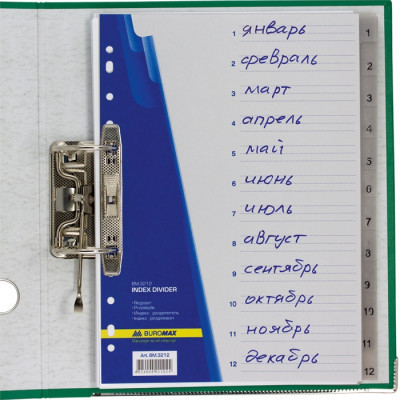 1 январь
2 февраль
3 март
4 апрель
5 май
6 июнь
7 июль
8 август
9 сентябрь
10 октябрь
11 ноябрь
12 декабрь
1
2
3
4
5
6
7
8
9
10
11
12
BM.3212
INDEX DIVIDER
BUROMAX
Art.BM.3212